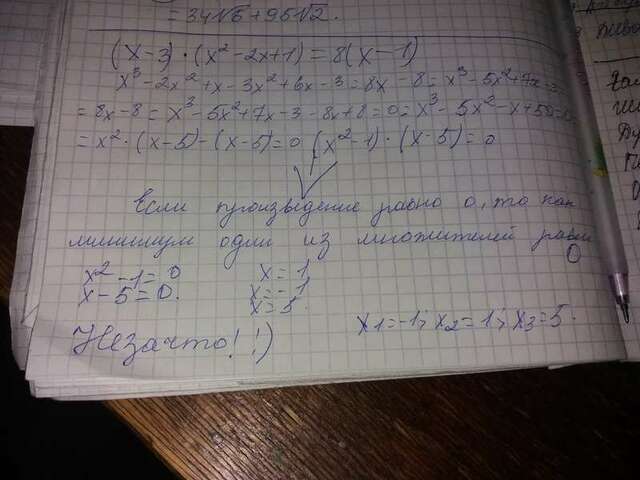 = 34√6 + 95√2.
(x-3) · (x² - 2x+1) = 8(x-1)
x³ - 2x² + x - 3x² + 6x - 3 = 8x - 8 = x³ - 5x² + 7x - 3
= 8x - 8 = x³ - 5x² + 7x - 3 - 8x + 8 = 0 = x³ - 5x² - x + 5
= x² · (x-5) - (x-5) = 0 (x² - 1) · (x-5) = 0
Если произведение равно 0, то как
минимум один из множителей равен
0
x² - 1 = 0 x = 1
x - 5 = 0. x = -1
x = 5.
x1 = -1; x2 = 1; x3 = 5.
Незачто! !)